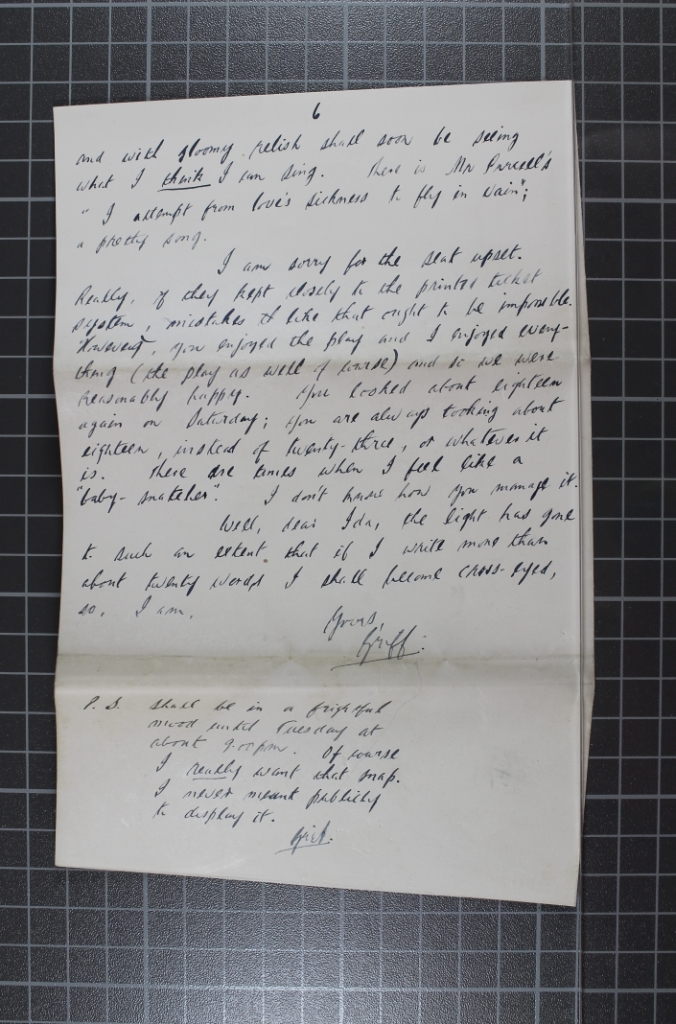 6
and with gloomy relish shall soon be seeing
what I think I can sing. There is Mr Purcell's
" I attempt from love's sickness to fly in vain";
a pretty song.
I am sorry for the seat upset.
Really, if they kept closely to the printed ticket
system, mistakes like that ought to be impossible.
However, you enjoyed the play and I enjoyed every-
thing (the play as well of course) and so we were
reasonably happy. You looked about eighteen
again on Saturday; you are always looking about
eighteen, instead of twenty-three, or whatever it
is. There are times when I feel like a
"baby-snatcher". I don't know how you manage it.
Well, dear Ida, the light has gone
to such an extent that if I write more than
about twenty words I shall become cross-eyed,
so, I am,
Yours,
Griff.
P.S. Shall be in a frightful
mood until Tuesday at
about 9.00pm. Of course
I really want that snap.
I never meant publicly
to display it.
Griff.